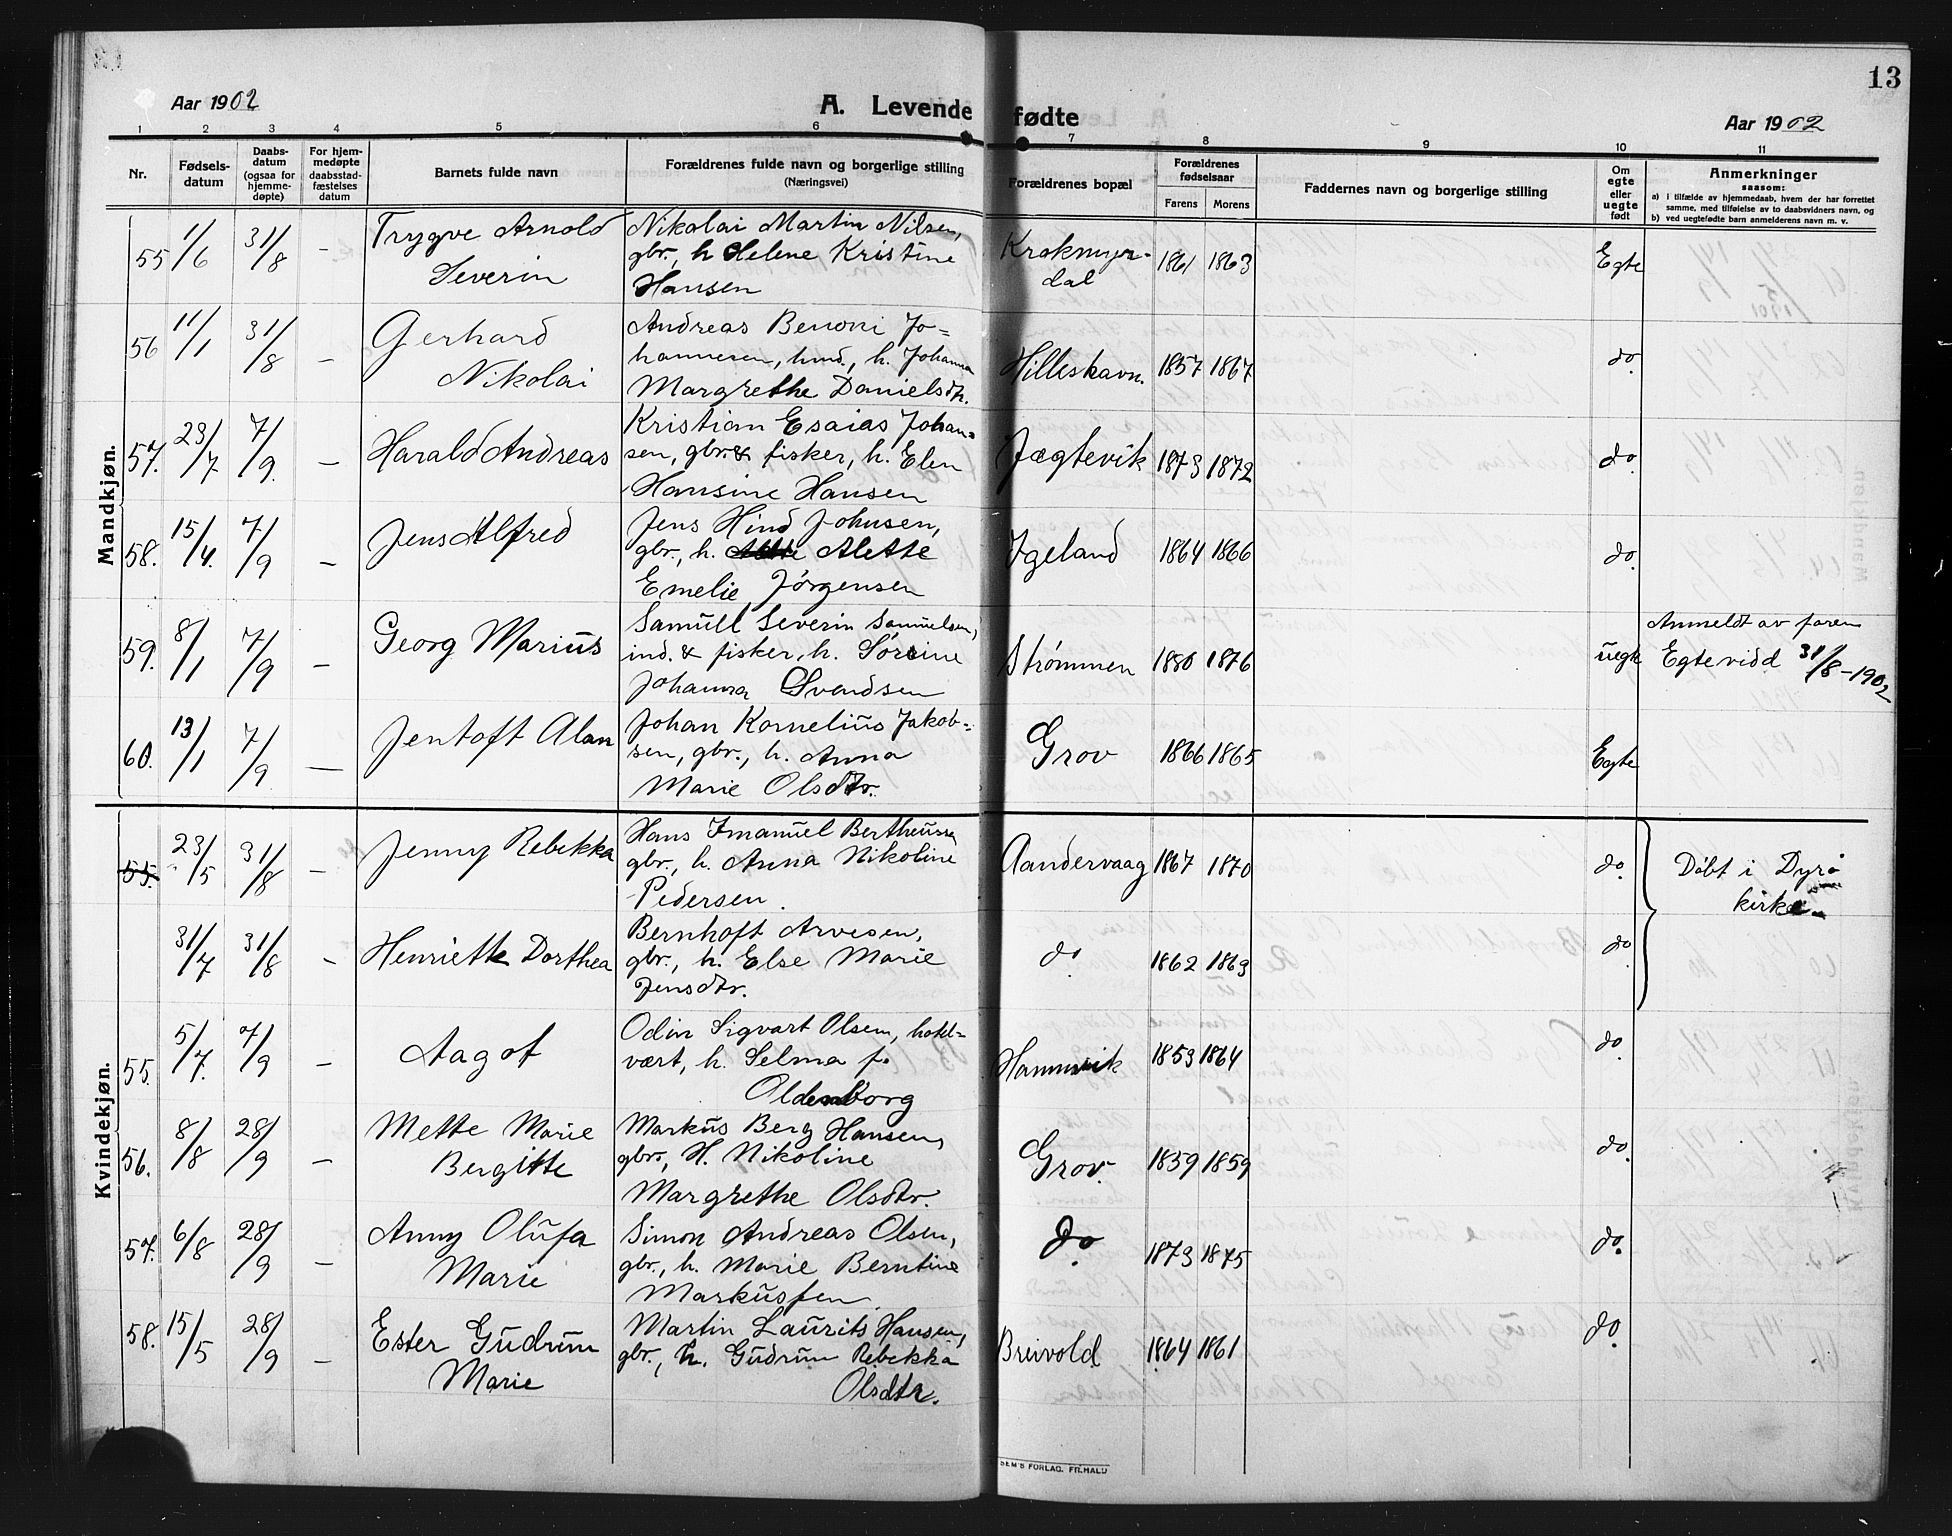 13
Aar 1902
A. Levende fødte
Aar 1902
1 2 3 4 5 6 7 8 9 10 11
Nr.
Fødsels-
datum
Daabs-
datum
(ogsaa for
hjemme-
døpte)
For hjem-
medøpte
daabsstad-
fæstelses
datum
Barnets fulde navn
Forældrenes fulde navn og borgerlige stilling
(Næringsvei)
Forældrenes bopæl
Forældrenes
fødselsaar
Farens
Morens
Faddernes navn og borgerlige stilling
Om
egte
eller
uegte
født
Anmerkninger
saasom:
a) i tilfælde av hjemmedaab, hvem der har forrettet
samme, med tilføielse av to daabsvidners navn, og
b) ved uegtefødte barn anmelderens navn m. v.
Mandkjøn.
55 1/6 31/8 - Trygve Arnold
Severin
Nikolai Martin Nilsen,
gbr., h. Helene Kristine
Hansen
Krokmyr-
dal
1861 1863 Egte
56 11/1 31/8 - Gerhard
Nikolai
Andreas Benoni Jo-
hannesen, hmd., h. Johanna
Margrethe Danielsdtr.
Hilleshavn. 1857 1867 do.
57. 23/7 7/9. - Harald Andreas
Kristian Esaias Johan-
sen, gbr. & fisker, h. Elen
Hansine Hansen
Jægtevik 1873 1872 do.
58. 15/4. 7/9 - Jens Alfred
Jens Hind Johnsen,
gbr., h. Alette
Emelie Jörgensen
Igeland 1864 1866 do.
59. 8/1 7/9 - Georg Marius
Samuel Severin Samuelsen,
ind. & fisker, h. Sörine
Johanna Svendsen
Strømmen 1880 1876 uegte
Anmeldt av faren
Egteviod 31/8-1902
60. 13/1 7/9 - Jentoft Alan
Johan Kornelius Jakob-
sen, gbr., h. Anna
Marie Olsdtr.
Grov 1866 1865 Egte
Kvindekjøn.
55. 23/5 31/8 - Jenny Rebekka
Hans Imanuel Bertheussen
gbr., h. Anna Nikoline
Pedersen.
Aandervaag 1867 1870 do.
Döbt i Dyrö
kirke
31/7 31/8 - Henriette Dorthea
Bernhoft Arvesen,
gbr., h. Else Marie
Jensdtr.
do 1862 1863 do.
55. 5/7. 7/9 - Aagot
Odin Sigvart Olsen, hotel-
vært, h. Selma f.
Oldenborg
Hamnvik 1853 1864 do.
56. 8/8 28/9 - Mette Marie
Bergitte
Markus Berg Hansen,
gbr., H. Nikoline
Margrethe Olsdtr.
Grov. 1859 1859 do.
57. 6/8 28/9 - Anny Olufa
Marie
Simon Andreas Olsen,
gbr., h. Marie Berntine
Markussen
do. 1873 1875 do.
58. 15/5 28/9 - Ester Gudrun
Marie
Martin Laurits Hansen,
gbr., h. Gudrun Rebekka
Olsdtr.
Breivold 1864 1861 do.
SEM'S FORLAG. FR.HALD